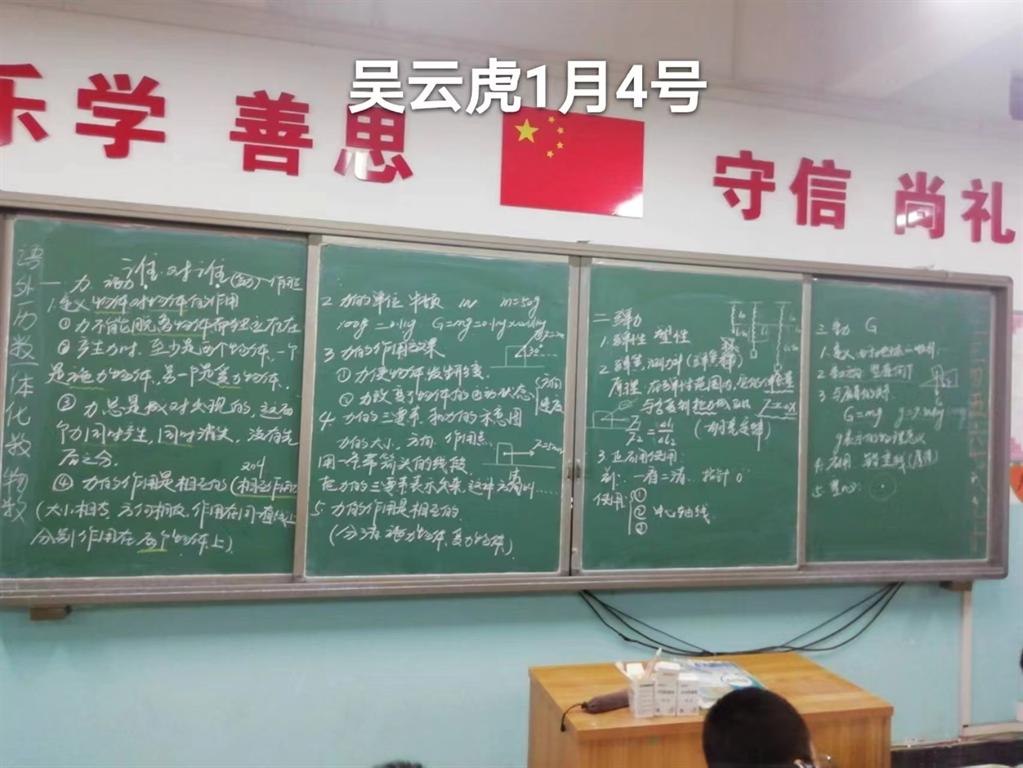 吴云虎1月4号
乐学 善思
守信 尚礼
语外历数一体化数物数
谁对谁(动)作用
一 力
1.定义 物体对物体的作用
①力不能脱离物体而独立存在
②产生力时,至少是两个物体,一个
是施力物体,另一个是受力物体.
③力总是成对出现的,这两
个力同时产生,同时消失,没有先
后之分.
④力的作用是相互的(相互作用力
(大小相等,方向相反,作用在同一直线上
分别作用在两个物体上)
2 力的单位 牛顿 1N m=50g
100g=0.1kg G=mg=0.1kg×10N/kg
3 力的作用效果
30°
①力使物体发生形变.
②力改变了物体的运动状态
方向
速度
4 力的三要素和力的示意图
力的大小、方向、作用点.
用一条带箭头的线段
把力的三要素表示出来,这种方法叫……
5 力的作用是相互的
(分清施力物体,受力物体)
二 弹力
1.弹性 塑性
2 弹簧测力计
原理 在弹性范围内,
3 正确用使用:
前:一看二清 指针0
使用:①
②中心轴线
③
三.重力 G
1.定义
2
3 与质量的关系
G=mg
g表示的物理意义
4.应用 铅垂线
5